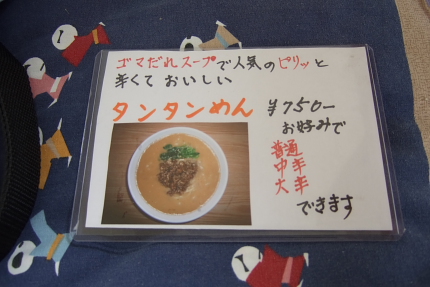 ゴマだれスープで人気のピリッと
辛くておいしい
タンタンめん ¥750-
お好みで
普通
中辛
大辛
できます